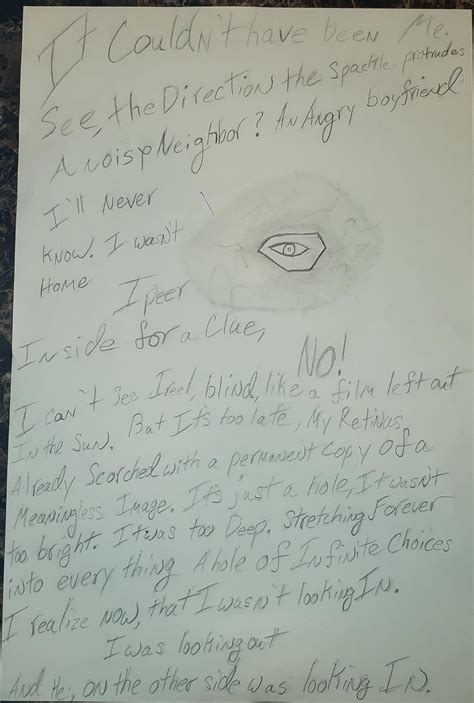 It Couldn't have been Me.
See, the Direction the Spackle protrudes
A noisy Neighbor? An Angry boyfriend.
I'll Never
Know. I wasn't
Home
I peer
Inside for a Clue,
No!
I can't See I reel, blind, like a film left out
In the Sun. But It's too late, My Retinas
Already Scorched with a permanent Copy of a
Meaningless Image. It's just a hole, It wasn't
too bright. It was too Deep. Stretching Forever
into every thing A hole of Infinite Choices
I realize Now, that I wasn't looking In.
I was looking out
And He, on the other side was looking In.